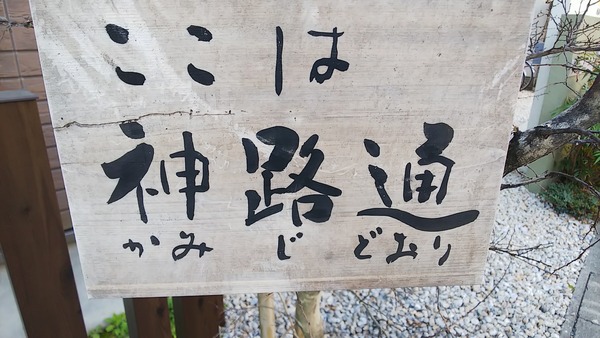 ここは
神路通
かみじどおり